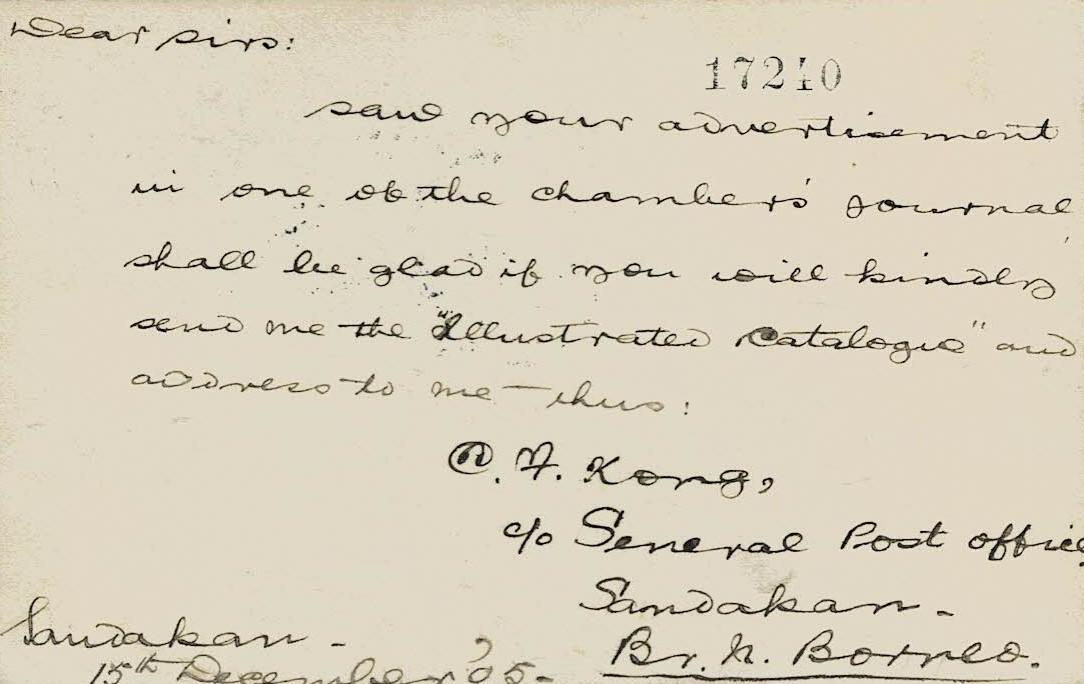 Dear Sirs:
17240
saw your advertisement
in one of the chambers' Journal
shall be glad if you will kindly
send me the "Illustrated Catalogue" and
address to me thus:
F. Kong,
c/o General Post office
Sandakan -
Sandakan -
Br. N. Borneo.
15th December, '05 -